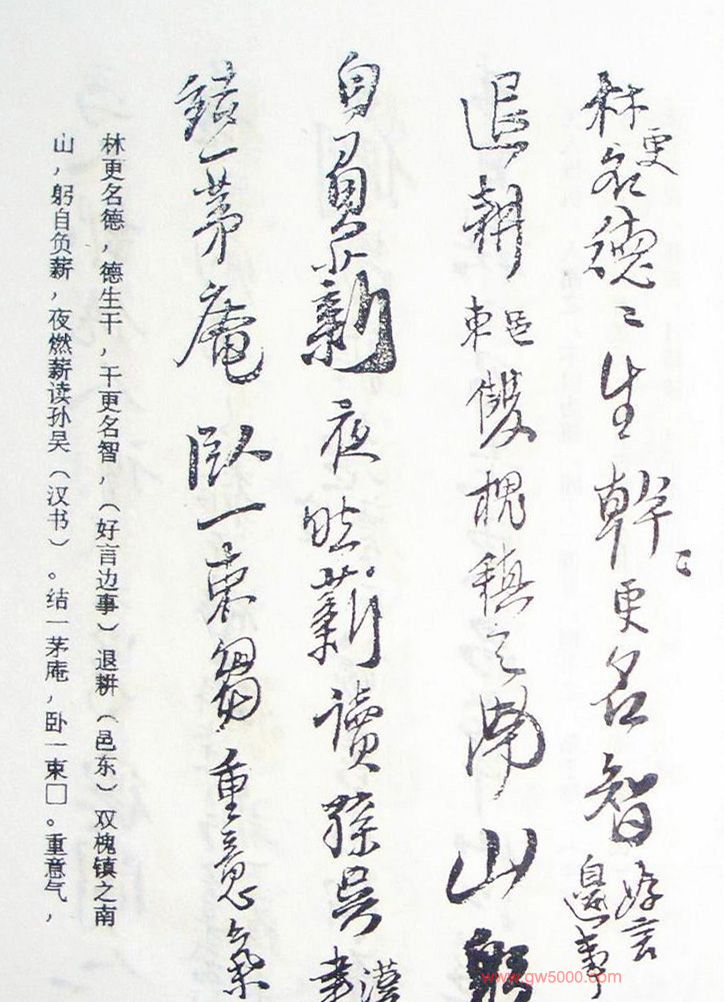 林更名德〻生幹〻更名智好言邊事
退耕邑東雙槐鎮之南山躬
自負薪夜燃薪讀孫吳漢書
結一茅庵臥一束芻重意氣
林更名德，德生干，干更名智，（好言边事）退耕（邑东）双槐镇之南
山，躬自负薪，夜燃薪读孙吴（汉书）。结一茅庵，卧一束□。重意气，
www.gw5000.com